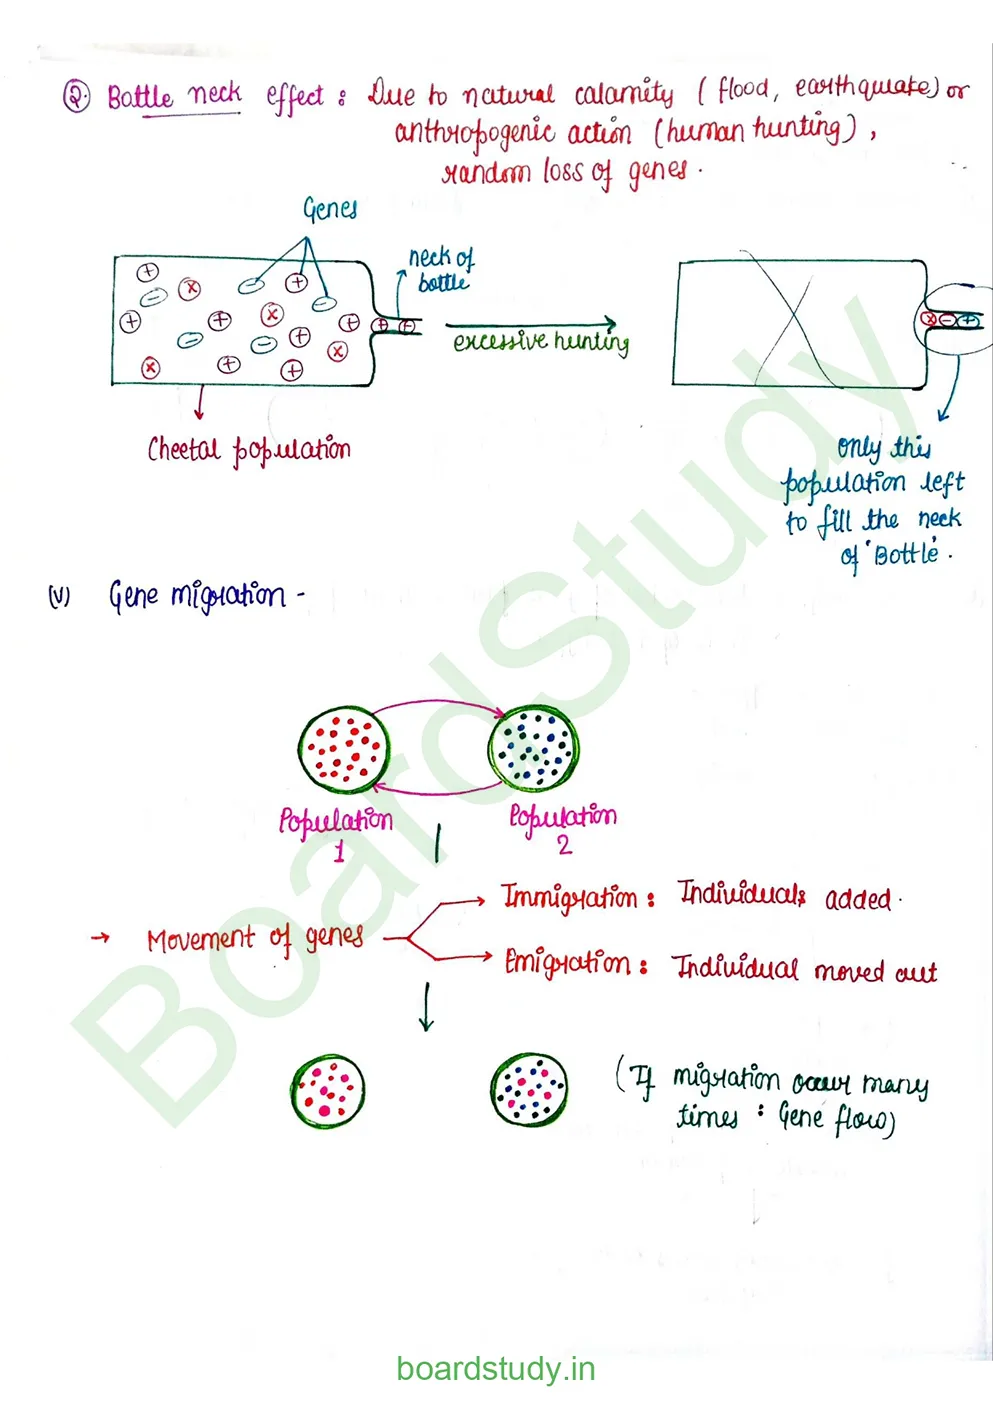 2. Bottle neck effect : Due to natural calamity ( flood, earthquake) or
anthropogenic action (human hunting) ,
random loss of genes .
Genes
neck of
bottle
excessive hunting
Cheetal population
only this
population left
to fill the neck
of 'Bottle' .
(V) Gene migration -
Population
1
Population
2
→ Movement of genes
Immigration : Individuals added .
Emigration : Individual moved out
(If migration occur many
times : Gene flow)
BoardStudy
boardstudy.in